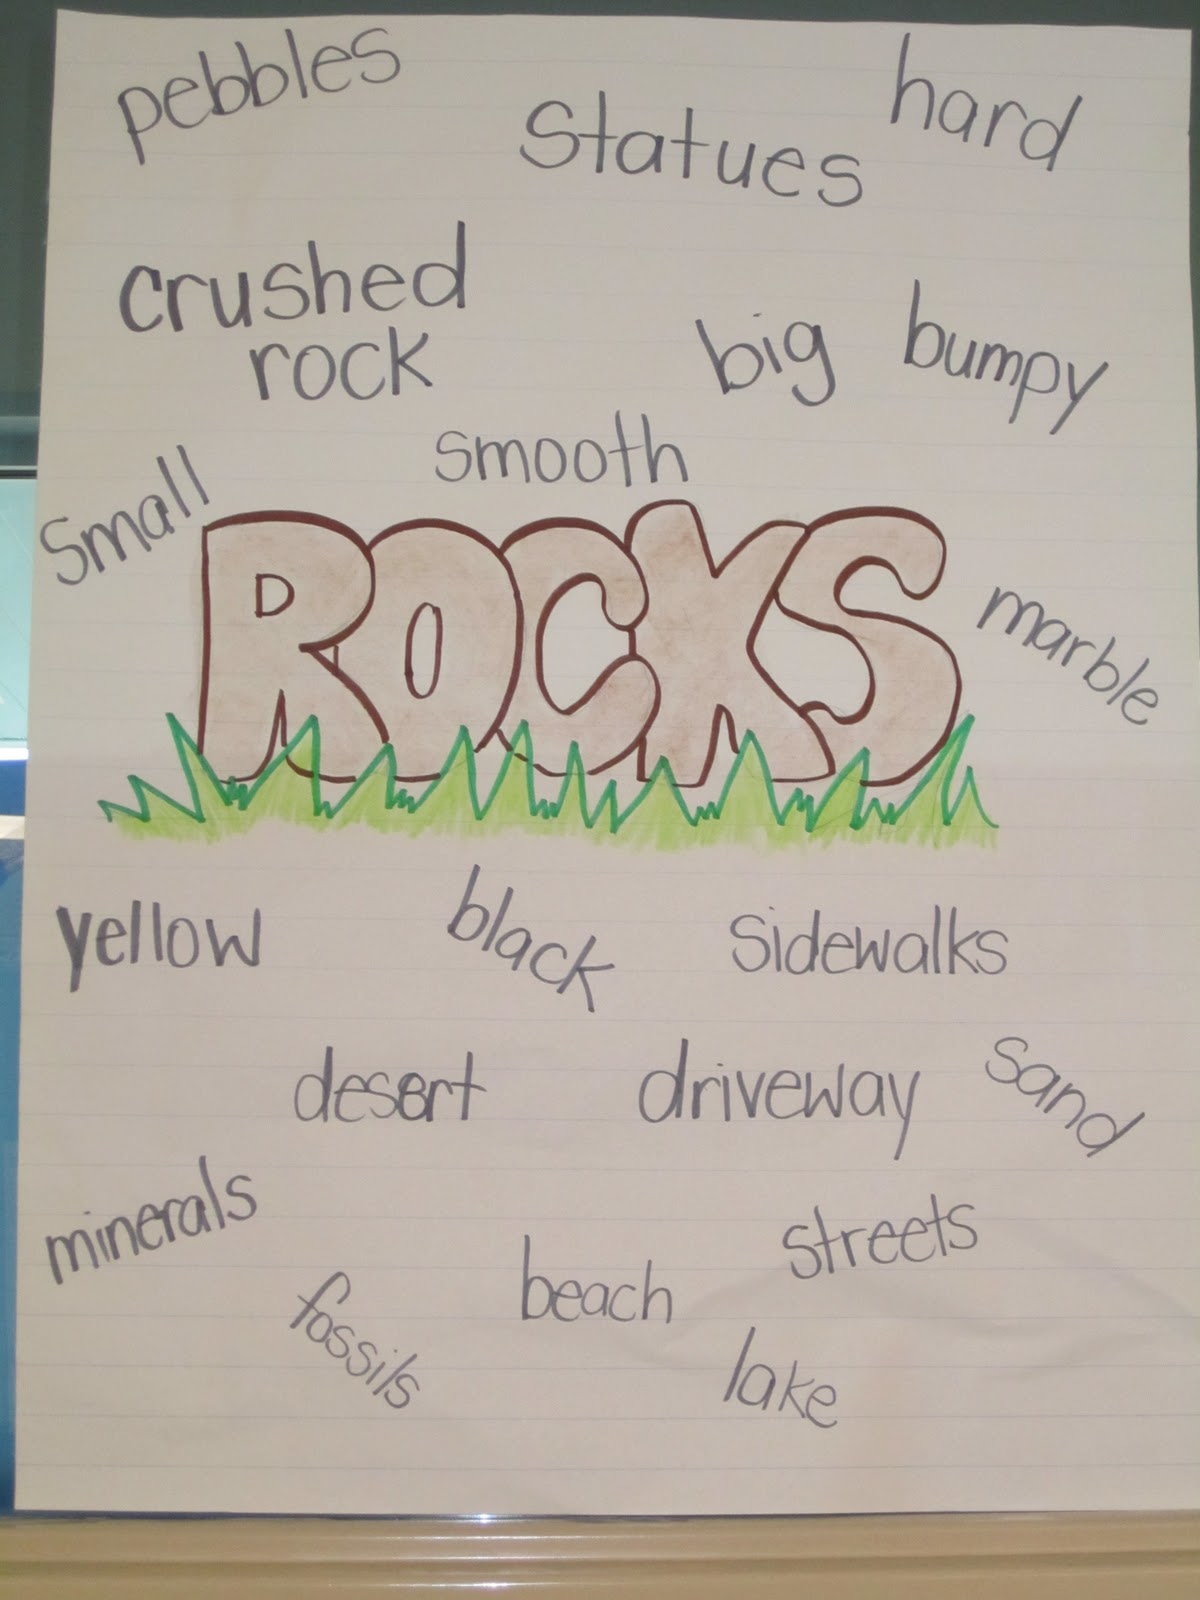 pebbles
Statues
hard
crushed
rock
big
bumpy
smooth
Small
ROCKS
marble
yellow
black
Sidewalks
desert
driveway
sand
minerals
streets
fossils
beach
lake